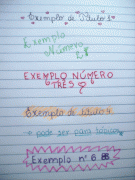 Exemplo de título 1
Exemplo
Número
EXEMPLO NÚMERO
TRÊS
Exemplo de título 4
pode ser para
Exemplo nº 6